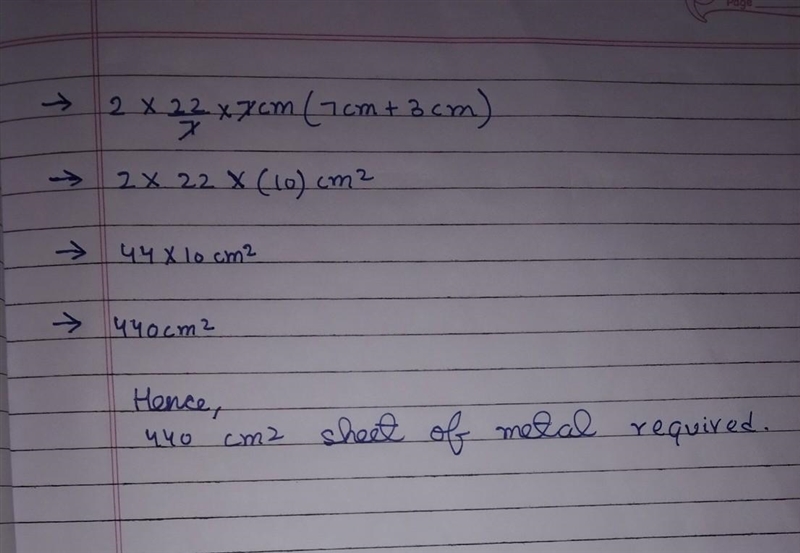 Page
→ 2 × 22/7 × 7cm (7cm + 3cm)
→ 2 × 22 × (10) cm²
→ 44 × 10 cm²
→ 440cm²
Hence,
440 cm2 sheet of metal required.